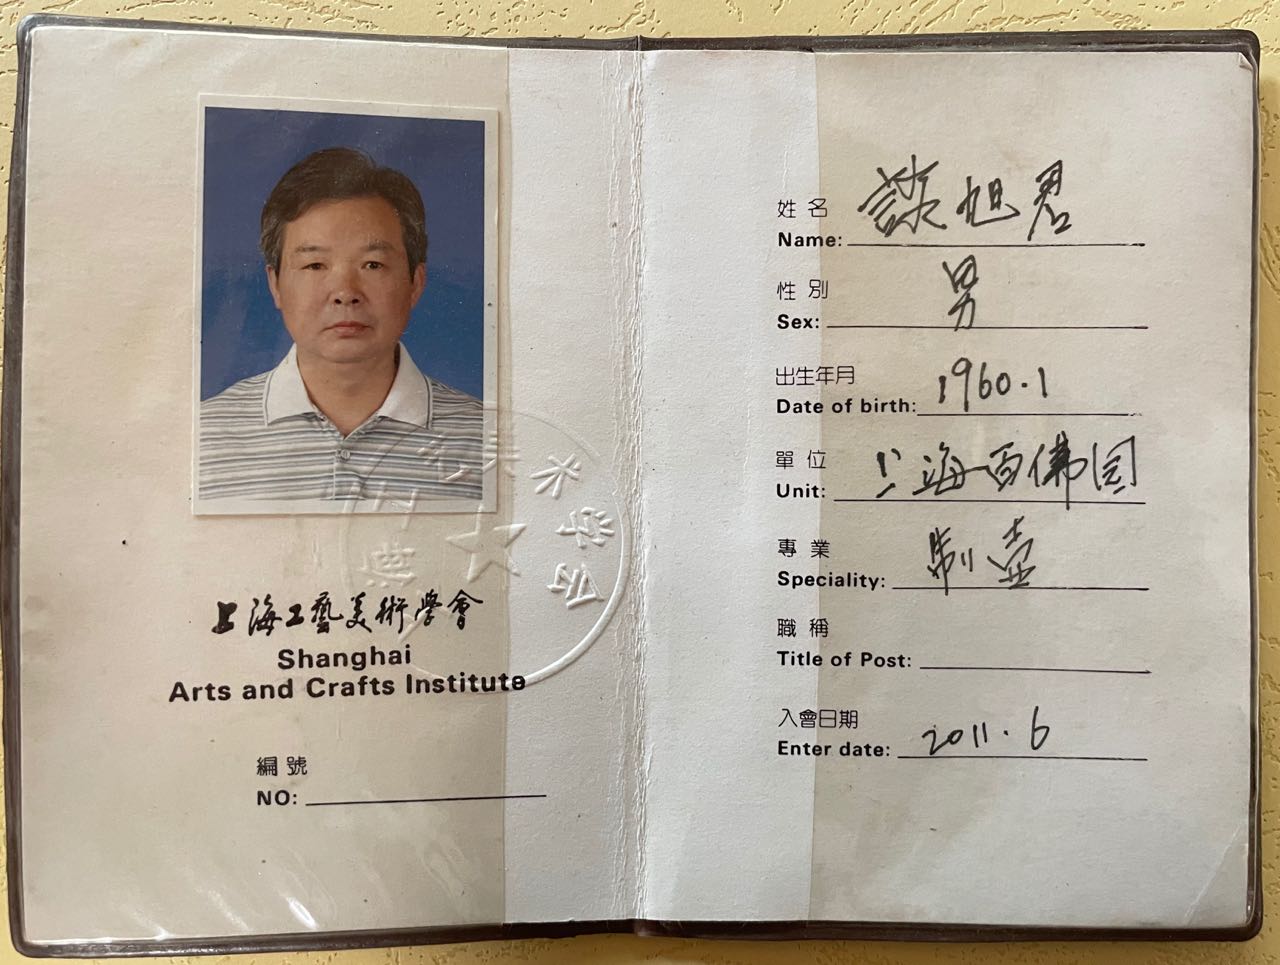 上海工藝美術學會
Shanghai
Arts and Crafts Institute
編號
NO:
姓名
Name: 談旭君
性別
Sex: 男
出生年月
Date of birth: 1960.1
單位
Unit: 上海百佛园
專業
Speciality: 制壶
職稱
Title of Post:
入會日期
Enter date: 2011.6